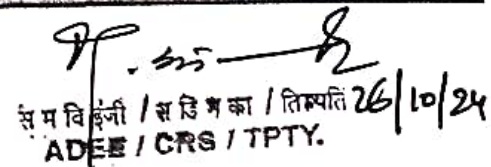 सं म वि इंजी / स डि भ का / तिरूपति 26/10/24
ADEE / CRS / TPTY.